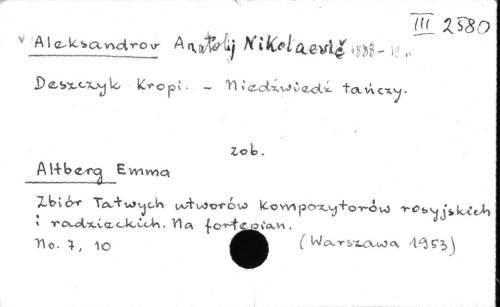 III 2580
Aleksandrov Anatolij Nikolaevič 1888-
Deszczyk Kropi. - Niedźwiedź tańczy.
zob.
Altberg Emma
Zbiór Łatwych utworów kompozytorów rosyjskich
i radzieckich. Na fortepian.
No. 7, 10 (Warszawa 1953)